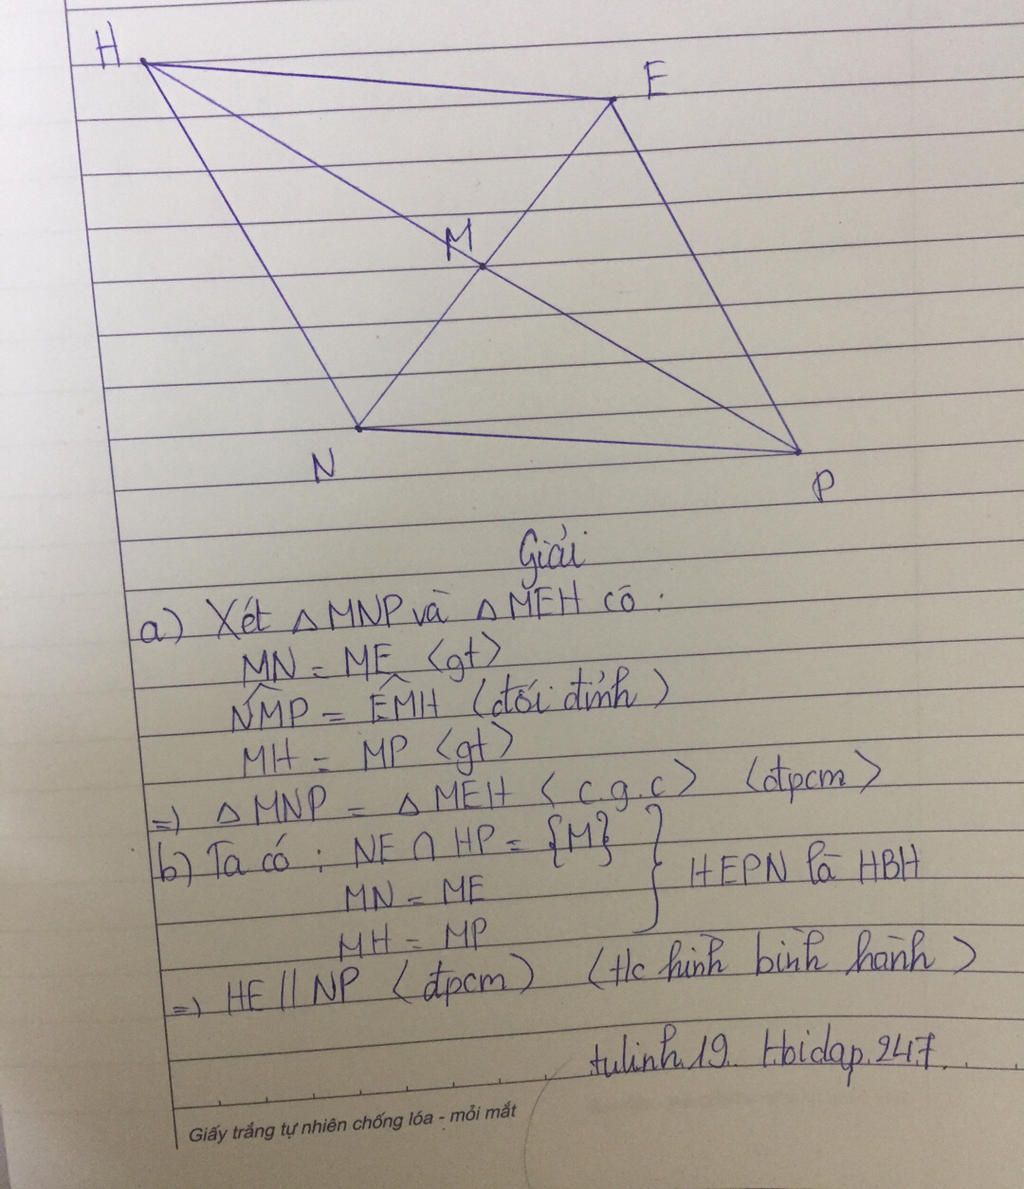 H
E
M
N
P
Giải
a) Xét △MNP và △MEH có :
MN = ME <gt>
N̂MP = ÊMH (đối đỉnh)
MH = MP <gt>
=) △MNP = △MEH <c.g.c> <đpcm>
b) Ta có : NE ∩ HP = {M}
MN = ME
MH = MP
} HEPN là HBH
=) HE // NP <đpcm) (t/c hình bình hành)
tulinh.19. Hoidap.247.
Giấy trắng tự nhiên chống lóa - mỏi mắt